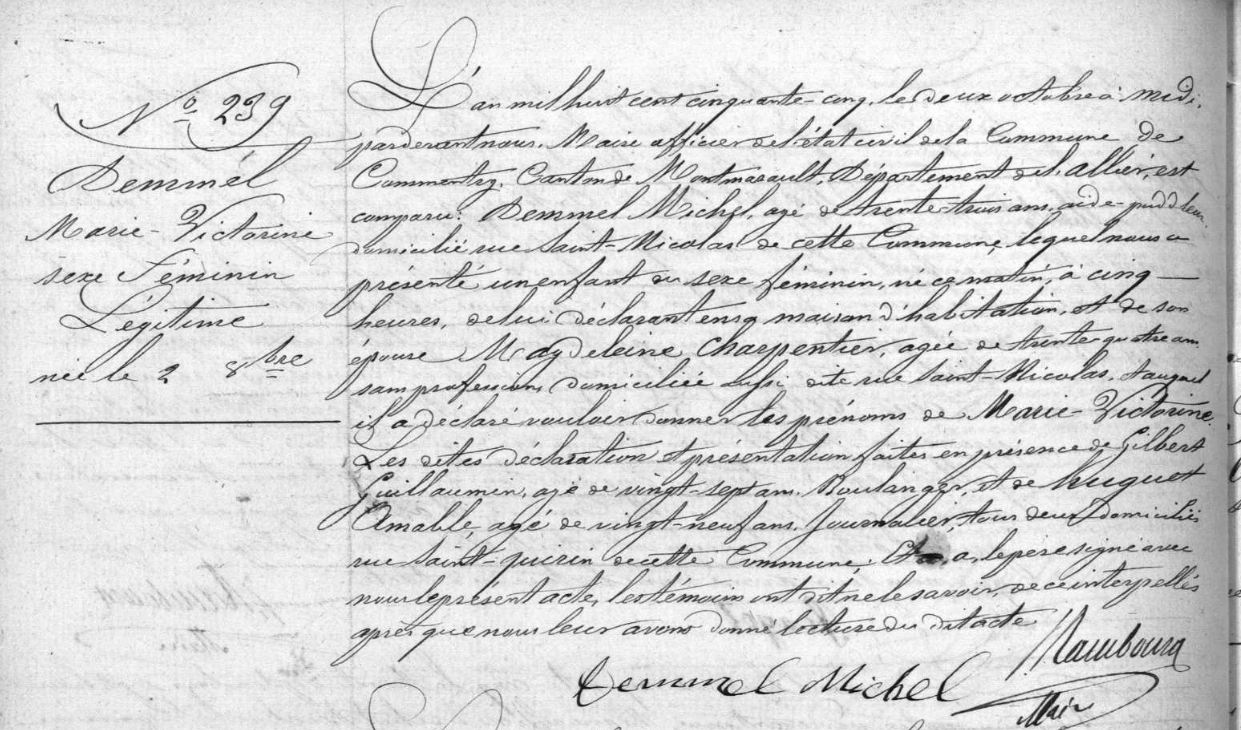 No 239
Demmel
Marie-Victorine
sexe Féminin
Légitime
née le 2 8bre
L'an mil huit cent cinquante-cinq, le deux octobre à midi,
pardevant nous, Maire officier de l'état civil de la Commune de
Commentry, Canton de Montmarault, Département de l'allier, est
comparu: Demmel Michel, agé de trente-trois ans, aide-puddleur
domicilié rue Saint-Nicolas de cette Commune, lequel nous a
présenté un enfant du sexe féminin, né ce matin, à cinq
heures, de lui déclarant en sa maison d'habitation, et de son
épouse Magdeleine Charpentier, agée de trente quatre ans,
sans profession, domiciliée aussi dite rue Saint-Nicolas, et auquel
il a déclaré vouloir donner les prénoms de Marie-Victorine.
Les dites déclaration et présentation faites en présence de Gilbert
Guillaumin, agé de vingt-sept ans, Boulanger, et de Huguet
Amable, agé de vingt-neuf ans, Journalier, tous deux domiciliés
rue Saint-quirin de cette Commune; Et a, le pere signé avec
nous le present acte, les témoins ont dit ne le savoir, de ce interpellés
après que nous leur avons donné lecture du dit acte
Demmel Michel
Rambourg
Maire